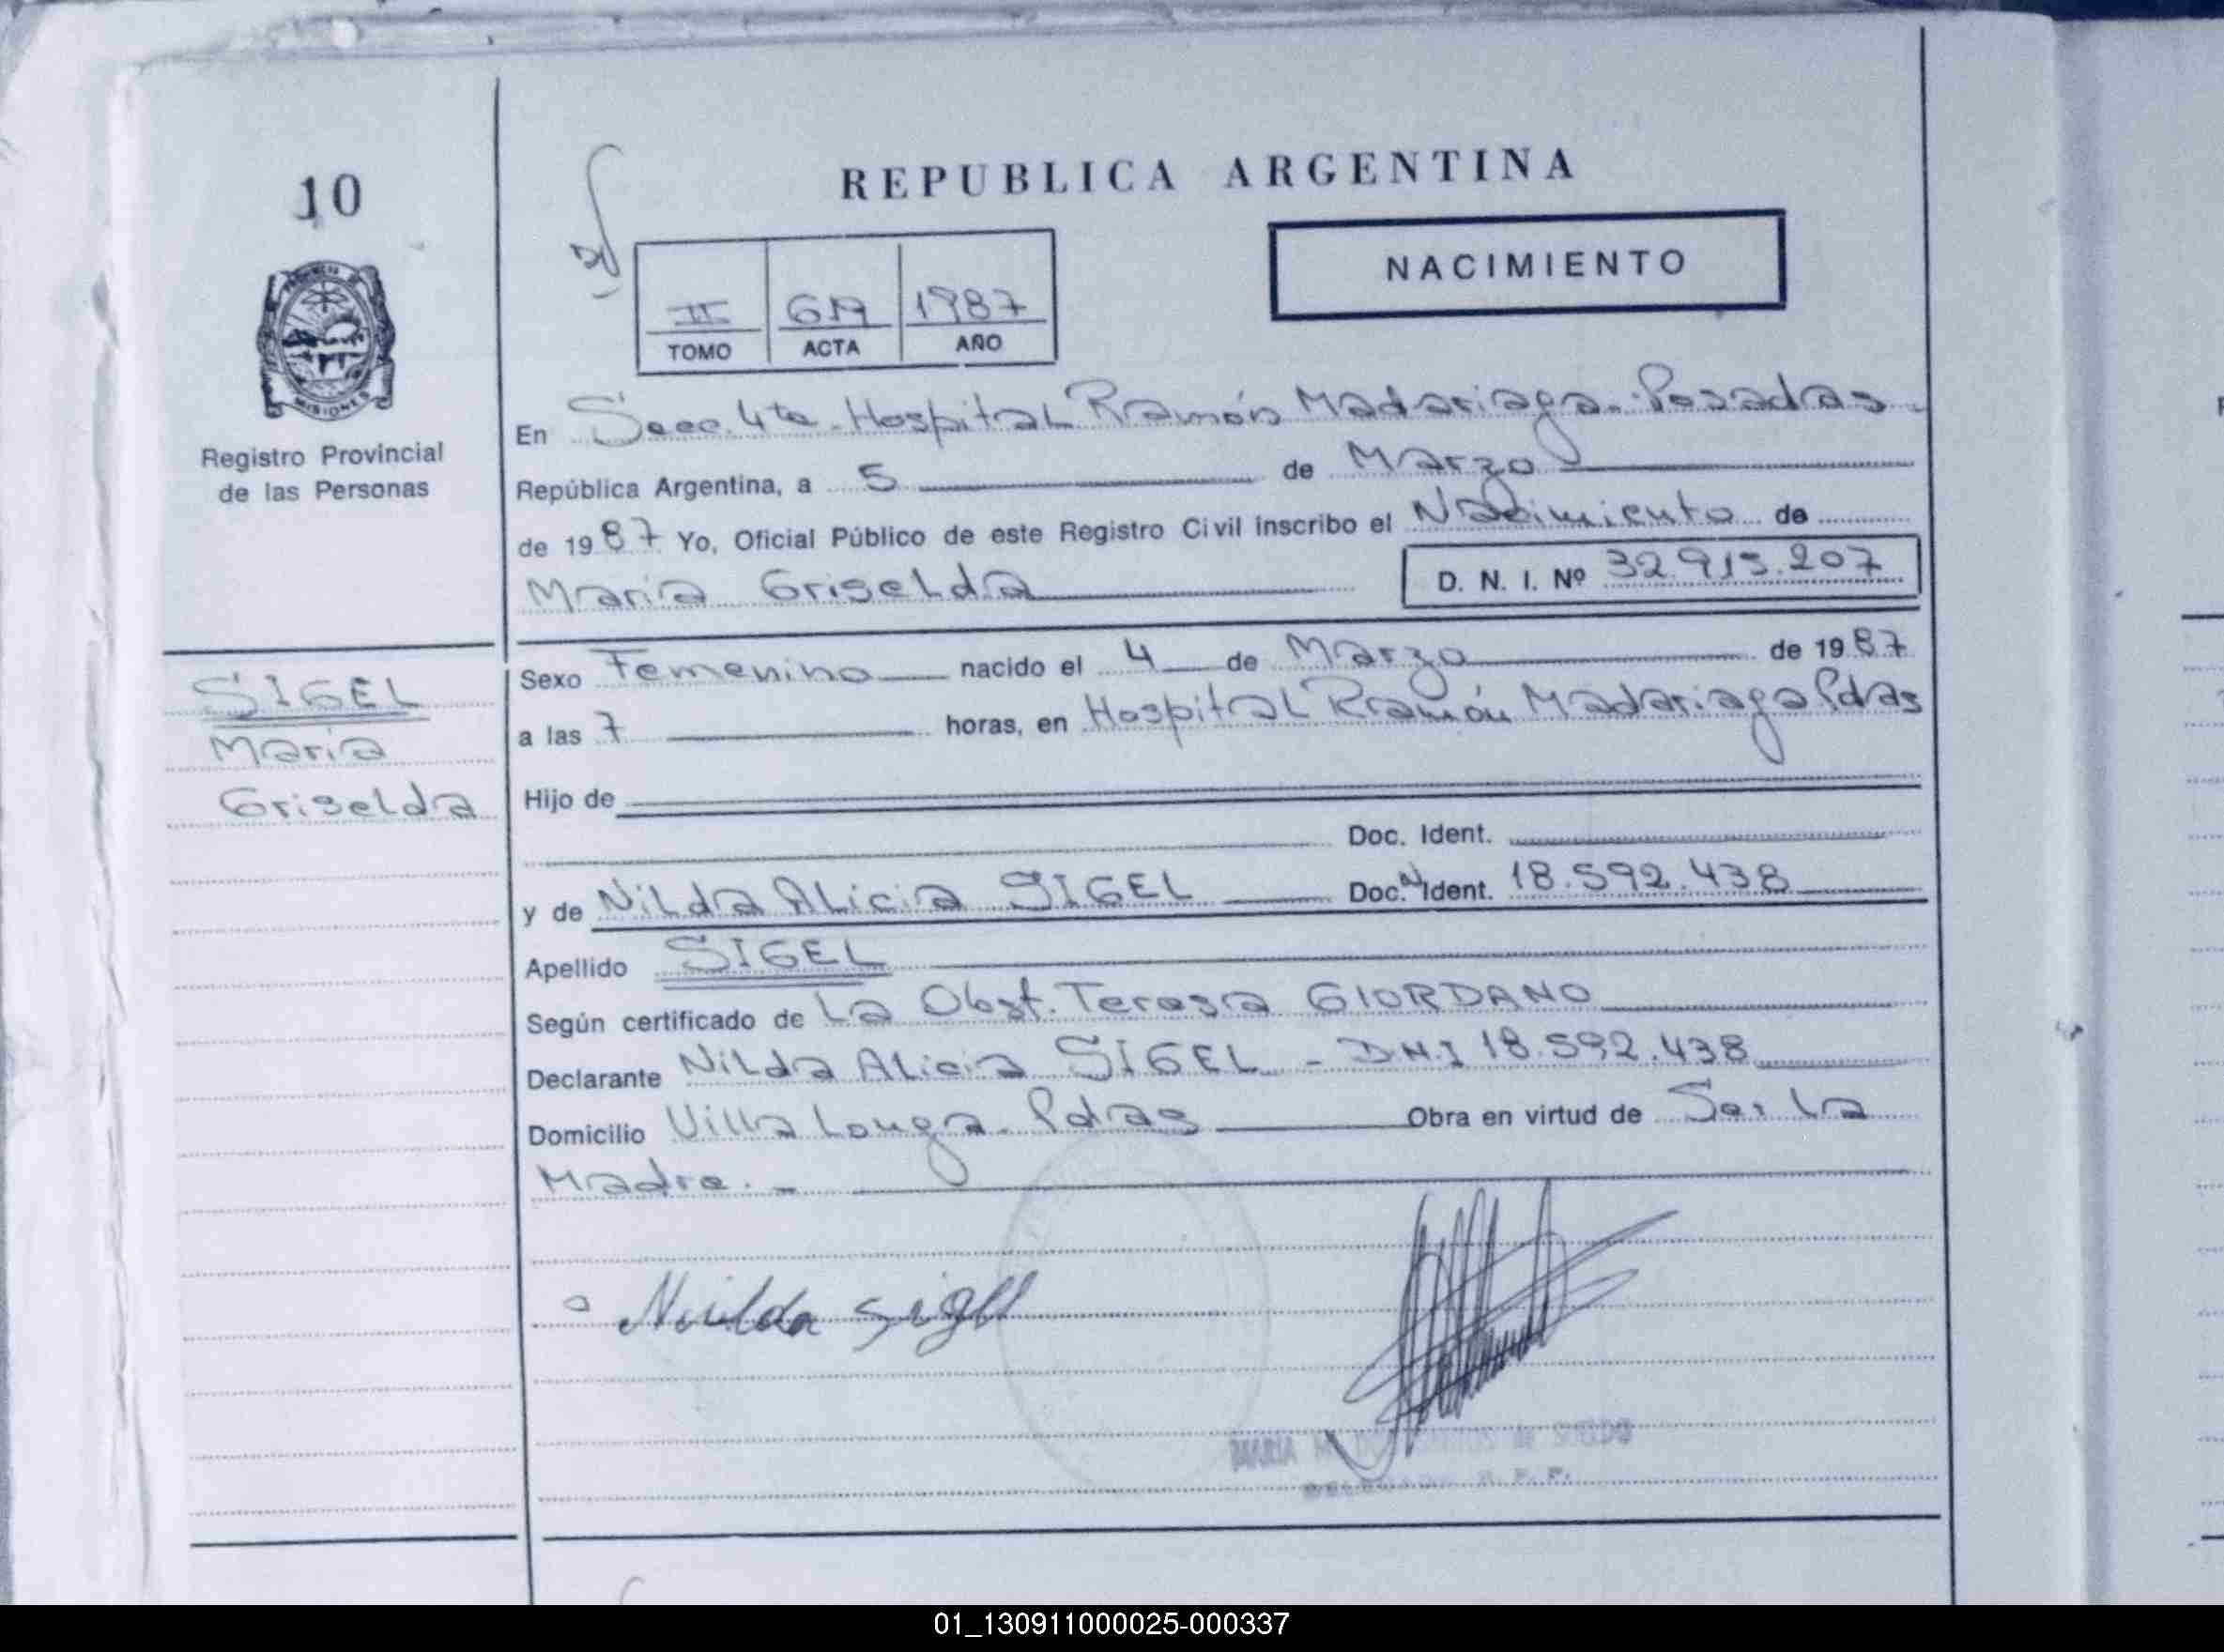 10
REPUBLICA ARGENTINA
NACIMIENTO
II 1987
TOMO ACTA AÑO
PROVINCIA DE
MISIONES
Registro Provincial
de las Personas
En Secc. 4ta. Hospital Ramón Madariaga. Posadas.
República Argentina, a 5 de Marzo
de 1987 Yo, Oficial Público de este Registro Civil inscribo el Nacimiento de
María Griselda D. N. I. Nº 32.915.207
SIGEL
María
Griselda
Sexo Femenino nacido el 4 de Marzo de 1987
a las 7 horas, en Hospital Ramón Madariaga Pdas
Hijo de
Doc. Ident.
y de Nilda Alicia SIGEL Doc. N Ident. 18.592.438
Apellido SIGEL
Según certificado de La Obst. Teresa GIORDANO
Declarante Nilda Alicia SIGEL - D.N.I 18.592.438
Domicilio Villa Longa. Pdas Obra en virtud de Ser La
Madre. -
Nuilda sigll
MARIA
01_130911000025-000337